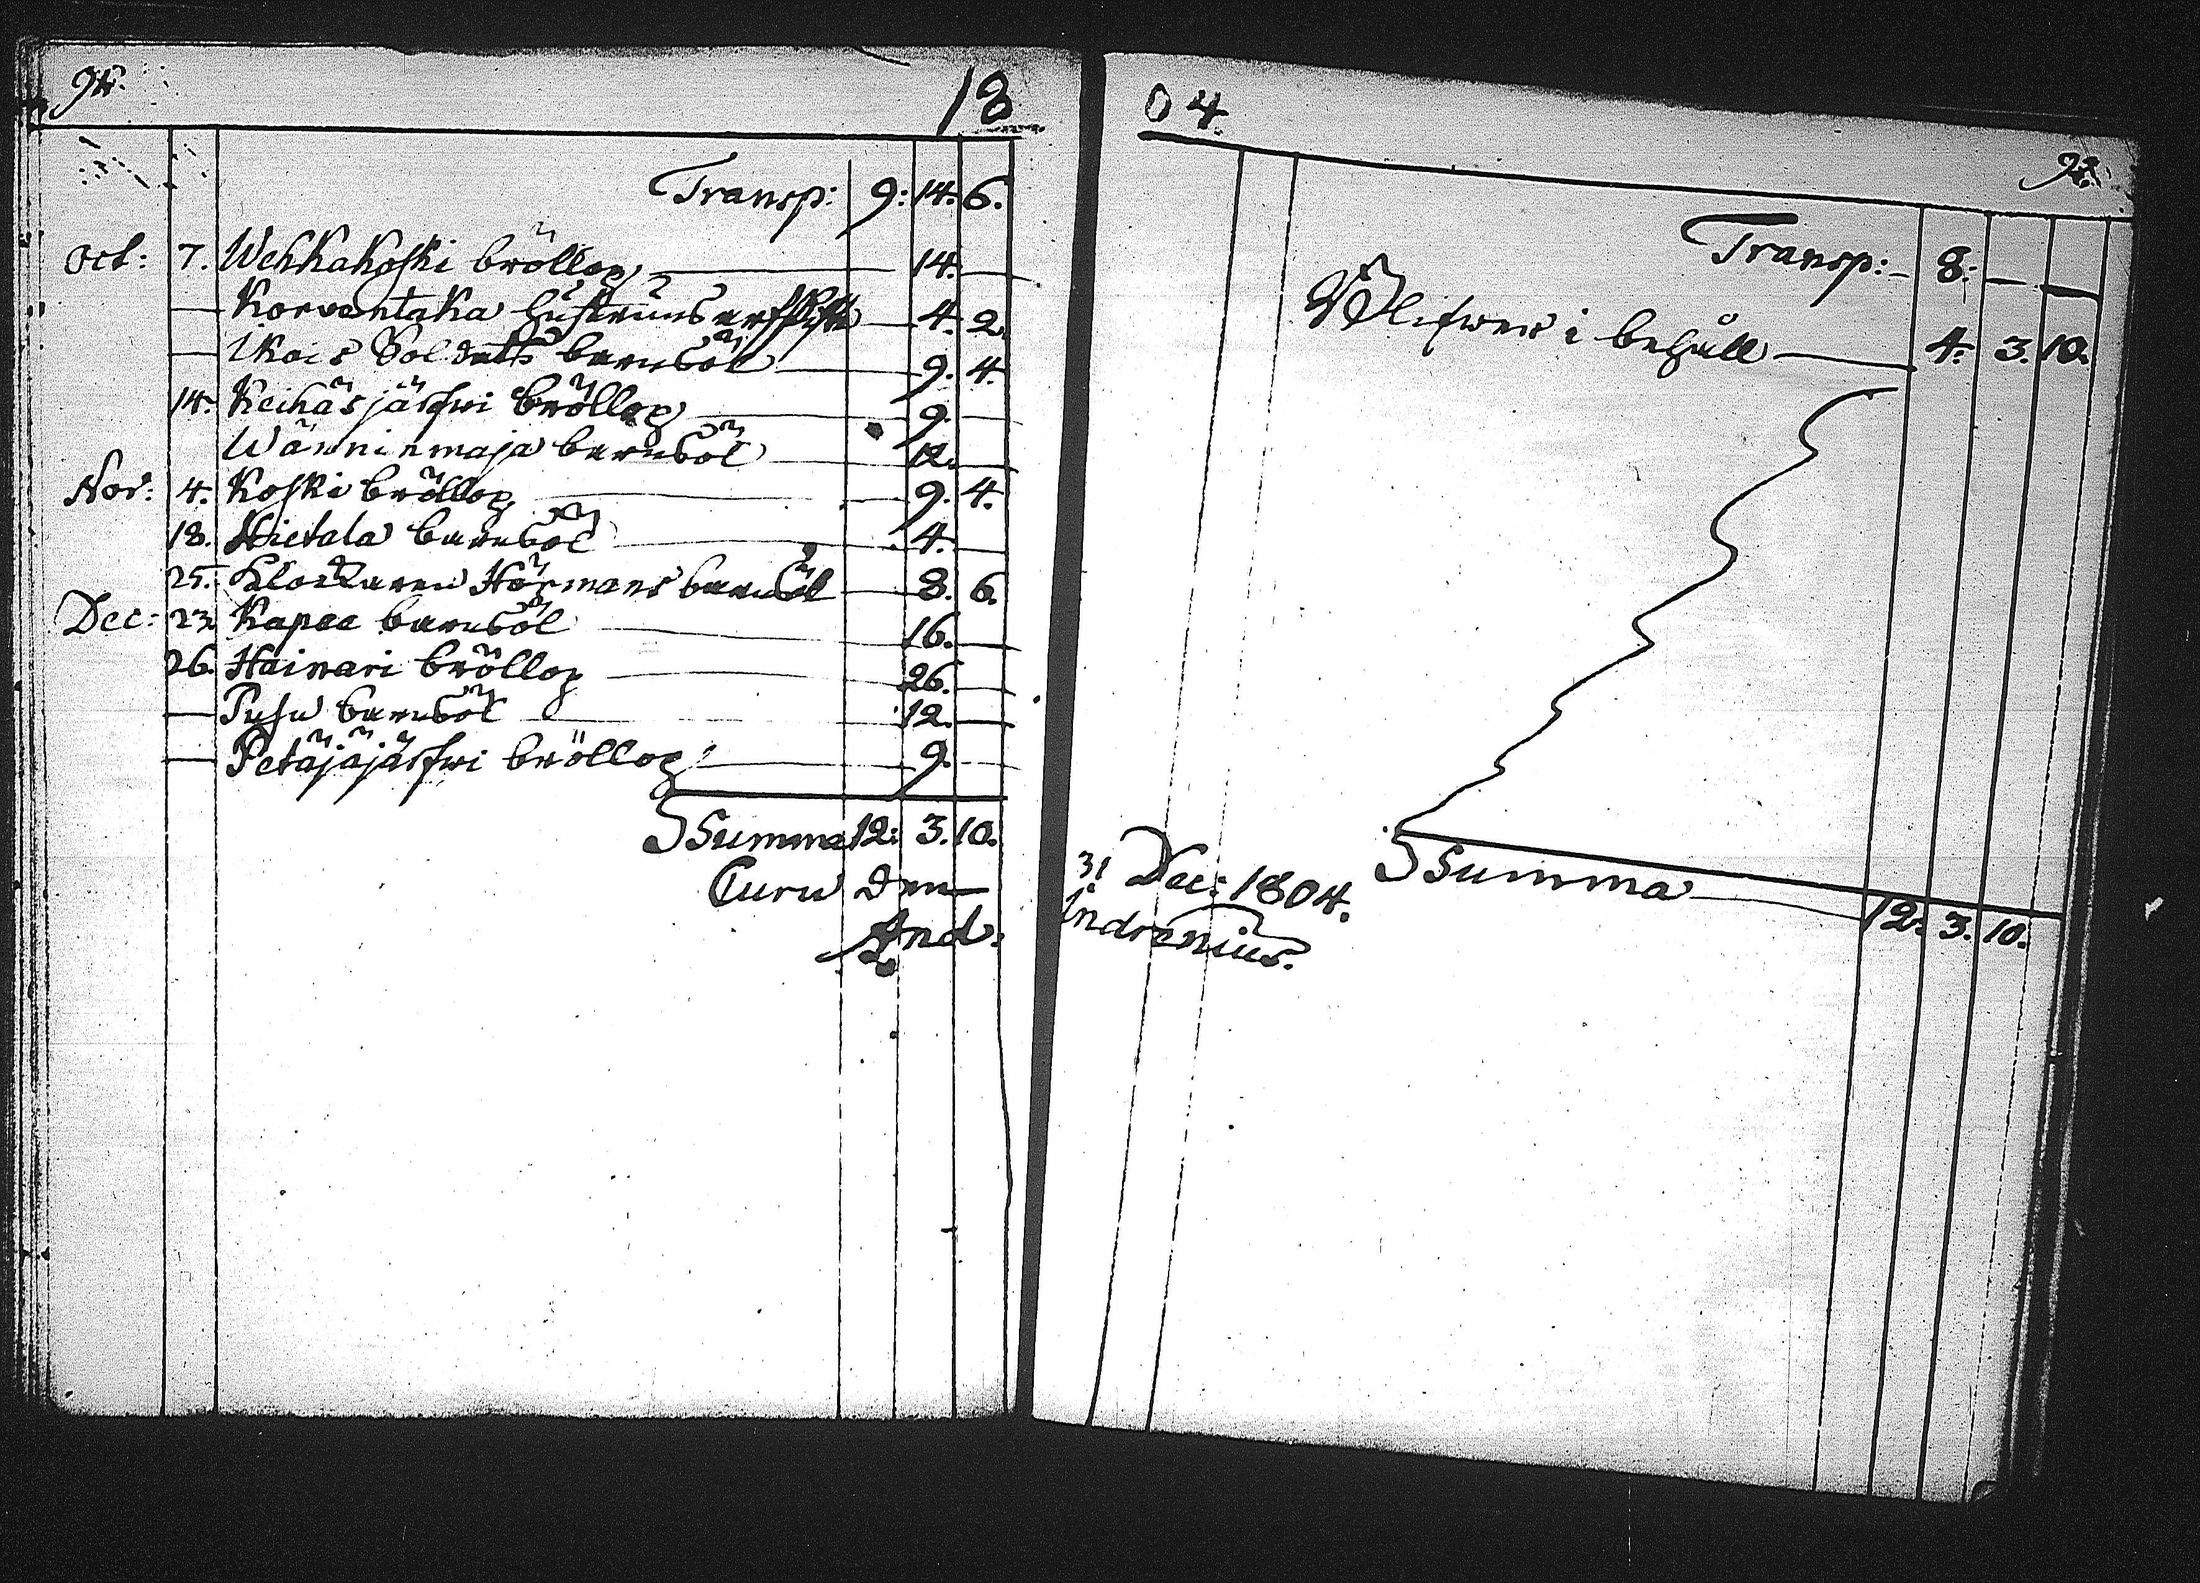 94.
18
Transp: 9: 14. 6.
Oct: 7. Wehkakoski bröllop 14. —
— Korventaka hustruns arfskifte 4. 2.
— Ikois Soldats barnsöl 9. 4.
14. Keihäsjärfwi bröllop 9. —
Wänninmaja barnsöl 12. —
Nov: 4. Koski bröllop 9. 4.
18. Hietala barnsöl 4. —
25. Klockaren Hörmans barnsöl 8. 6.
Dec: 23. Kapee barnsöl 16. —
26. Hainari bröllop 26. —
— Puhu barnsöl 12. —
— Petäjäjärfwi bröllop 9. —
Summa 12: 3. 10.
Curu den
And:
04.
Transp: 8: — —
Blifwer i behåll 4: 3. 10.
Summa 12: 3. 10.
31 Dec: 1804.
Indrenius.